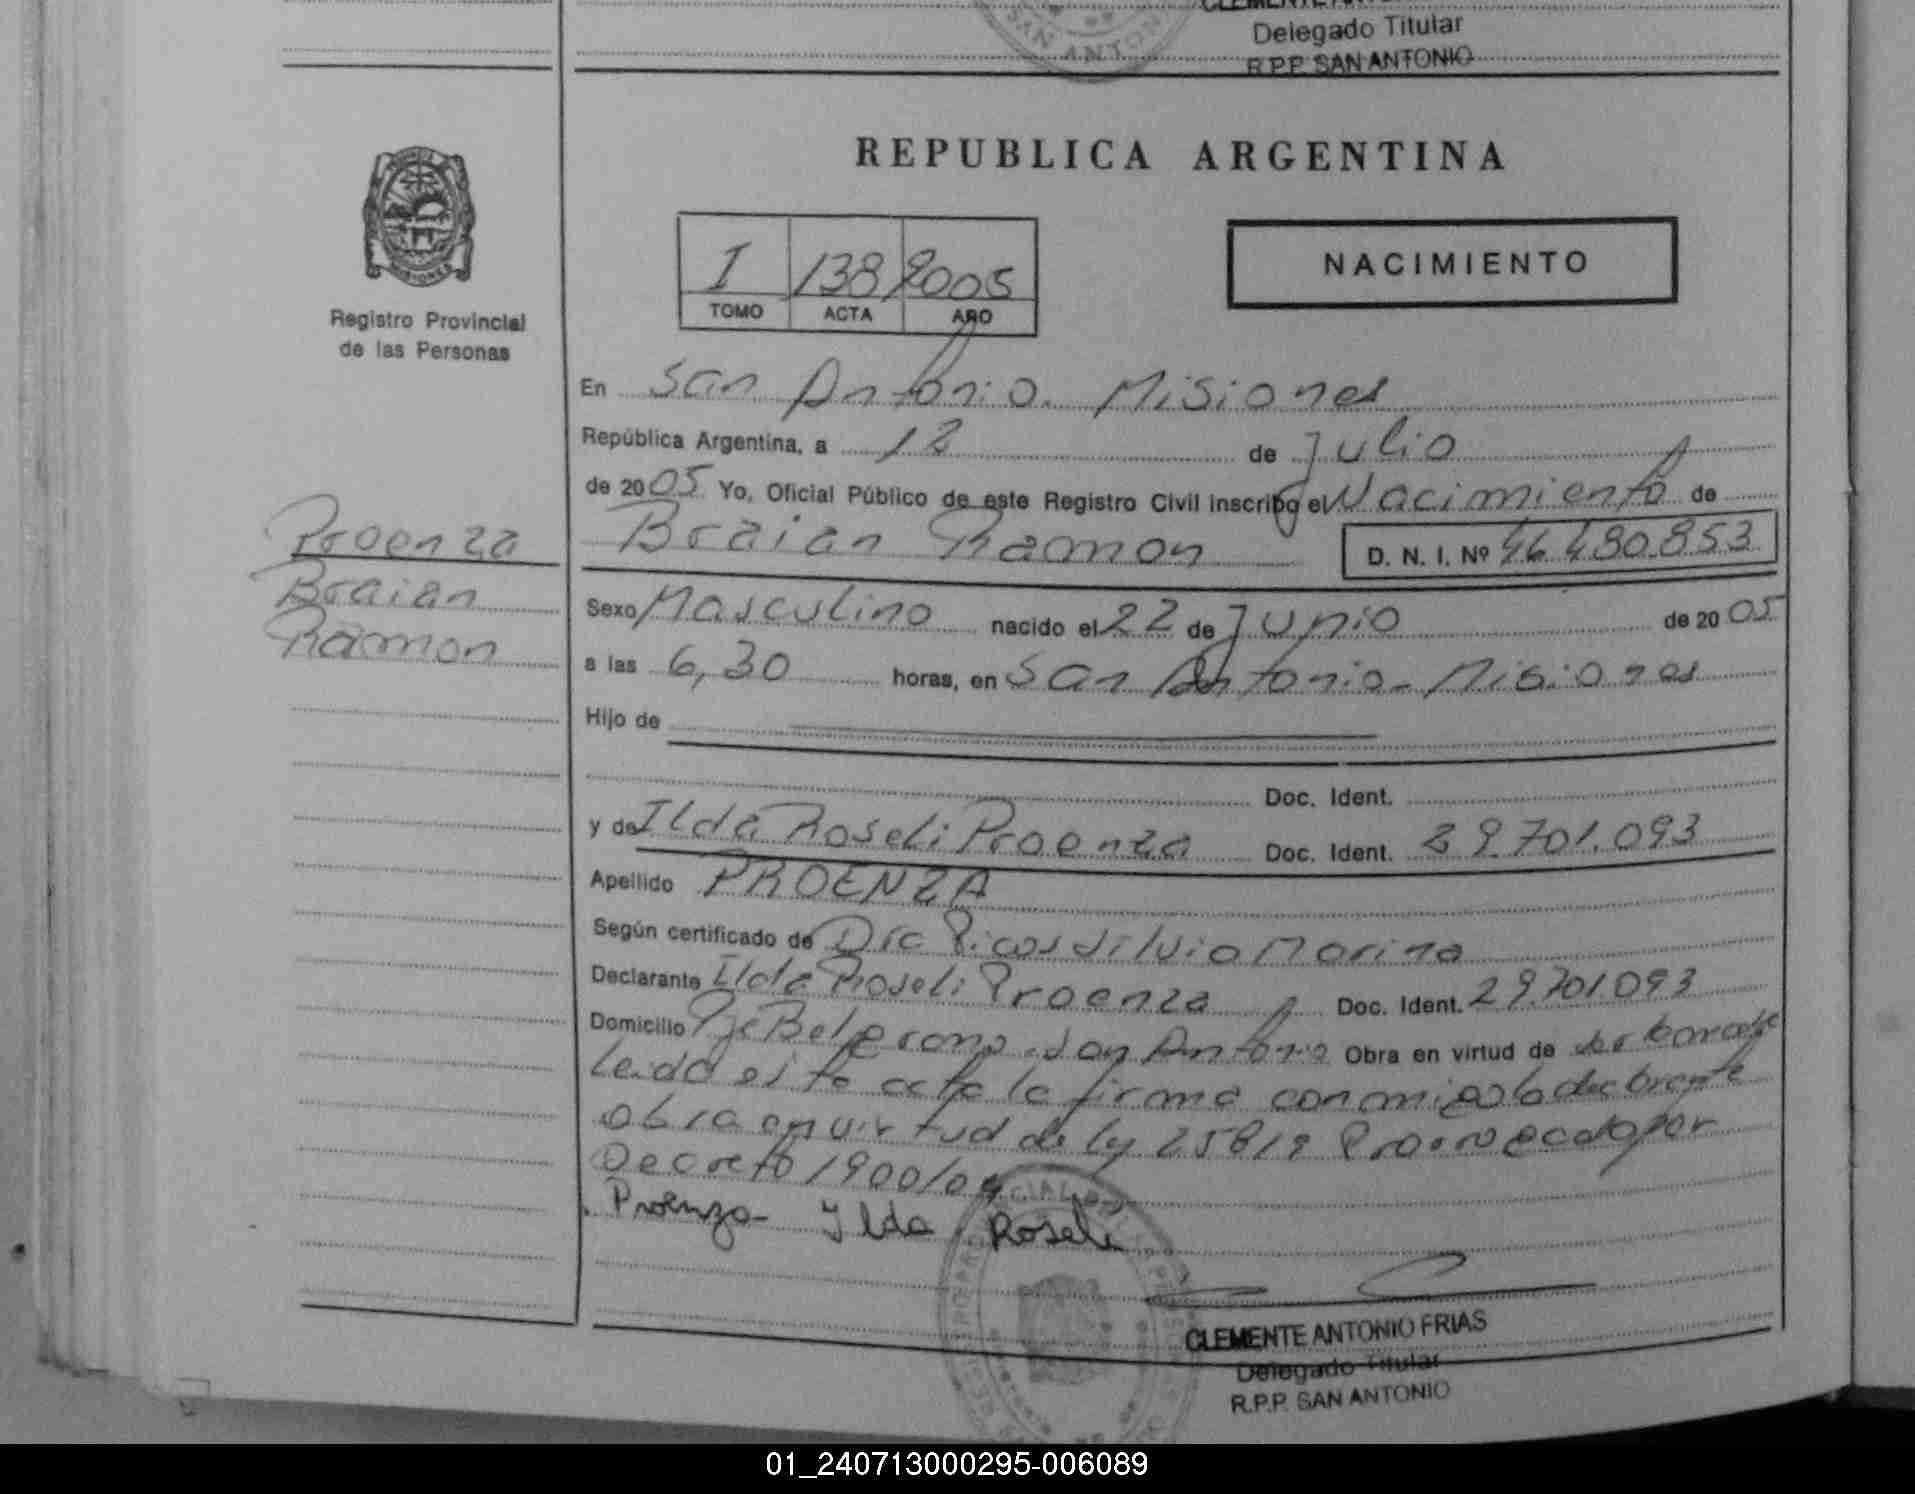 Delegado Titular
R.P.P. SAN ANTONIO
SAN ANTONIO
REPUBLICA ARGENTINA
I 138 2005
TOMO ACTA AÑO
NACIMIENTO
MISIONES
Registro Provincial
de las Personas
En San Antonio. Misiones
República Argentina, a 12 de Julio
de 2005 Yo, Oficial Público de este Registro Civil inscribo el Nacimiento de
Braian Ramon D. N. I. Nº 46.480.853
Proenza
Braian
Ramon
Sexo Masculino nacido el 22 de Junio de 2005
a las 6,30 horas, en San Antonio - Misiones
Hijo de
Doc. Ident.
y de Ilda Roseli Proenza Doc. Ident. 29.701.093
Apellido PROENZA
Según certificado de Dra Silvia Marina
Declarante Ilda Roseli Proenza Doc. Ident. 29.701.093
Domicilio Pje Belgrano. San Antonio Obra en virtud de
Leida esta acta la firma conmigo la declarante
obra en virtud de ley 25819 por
Decreto 1900/04
Proenza Ylda Roseli
CLEMENTE ANTONIO FRIAS
Delegado Titular
R.P.P. SAN ANTONIO
01_240713000295-006089